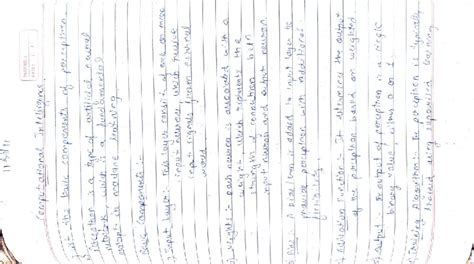 Computational intelligence
1) list the basic components of perceptron.
Perceptron is a type of artificial neural
network which is a fundamental
concept in machine learning
Basic Components :-
1) Input layer:- This layer consist of one or more
input neurons, which receive
input signals from external
world.
2) Weights :- each neuron is associated with a
weight, which represents the
strength of connection b/w
input neuron and output neuron
3) Bias :- A bias term is added to input layer to
provide perceptron with additional
flexibility
4) Activation Function :- It determines the output
of the perceptron based on weighted
5) output :- The output of perceptron is a single
binary value, either 0 or 1.
6) Training Algorithm :- The perceptron is typically
trained using supervised learning